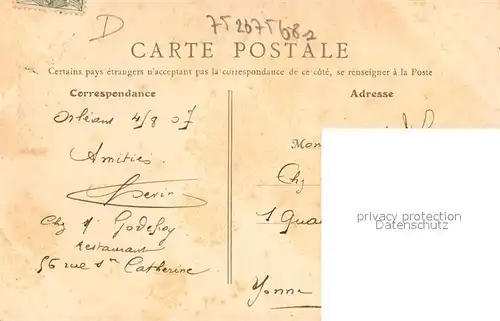 D
CARTE POSTALE
Certains pays étrangers n'acceptant pas la correspondance de ce côté, se renseigner à la Poste
Correspondance
Adresse
Orléans 4/8 07
Amitiés
Chz M Godefroy
restaurant
56 rue Ste Catherine
Mon
Chz
1 Quai
Yonne
privacy protection
Datenschutz